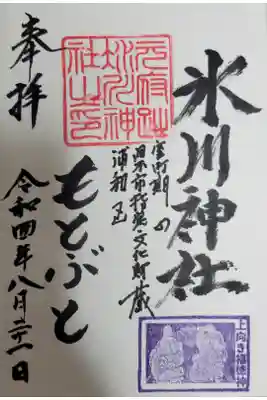 氷川神社
室町期の
日本市指定文化財蔵
浦和国
もとぶと
奉拝
令和四年八月二十一日
元府趾
氷川神
社之印
上向き福徳神